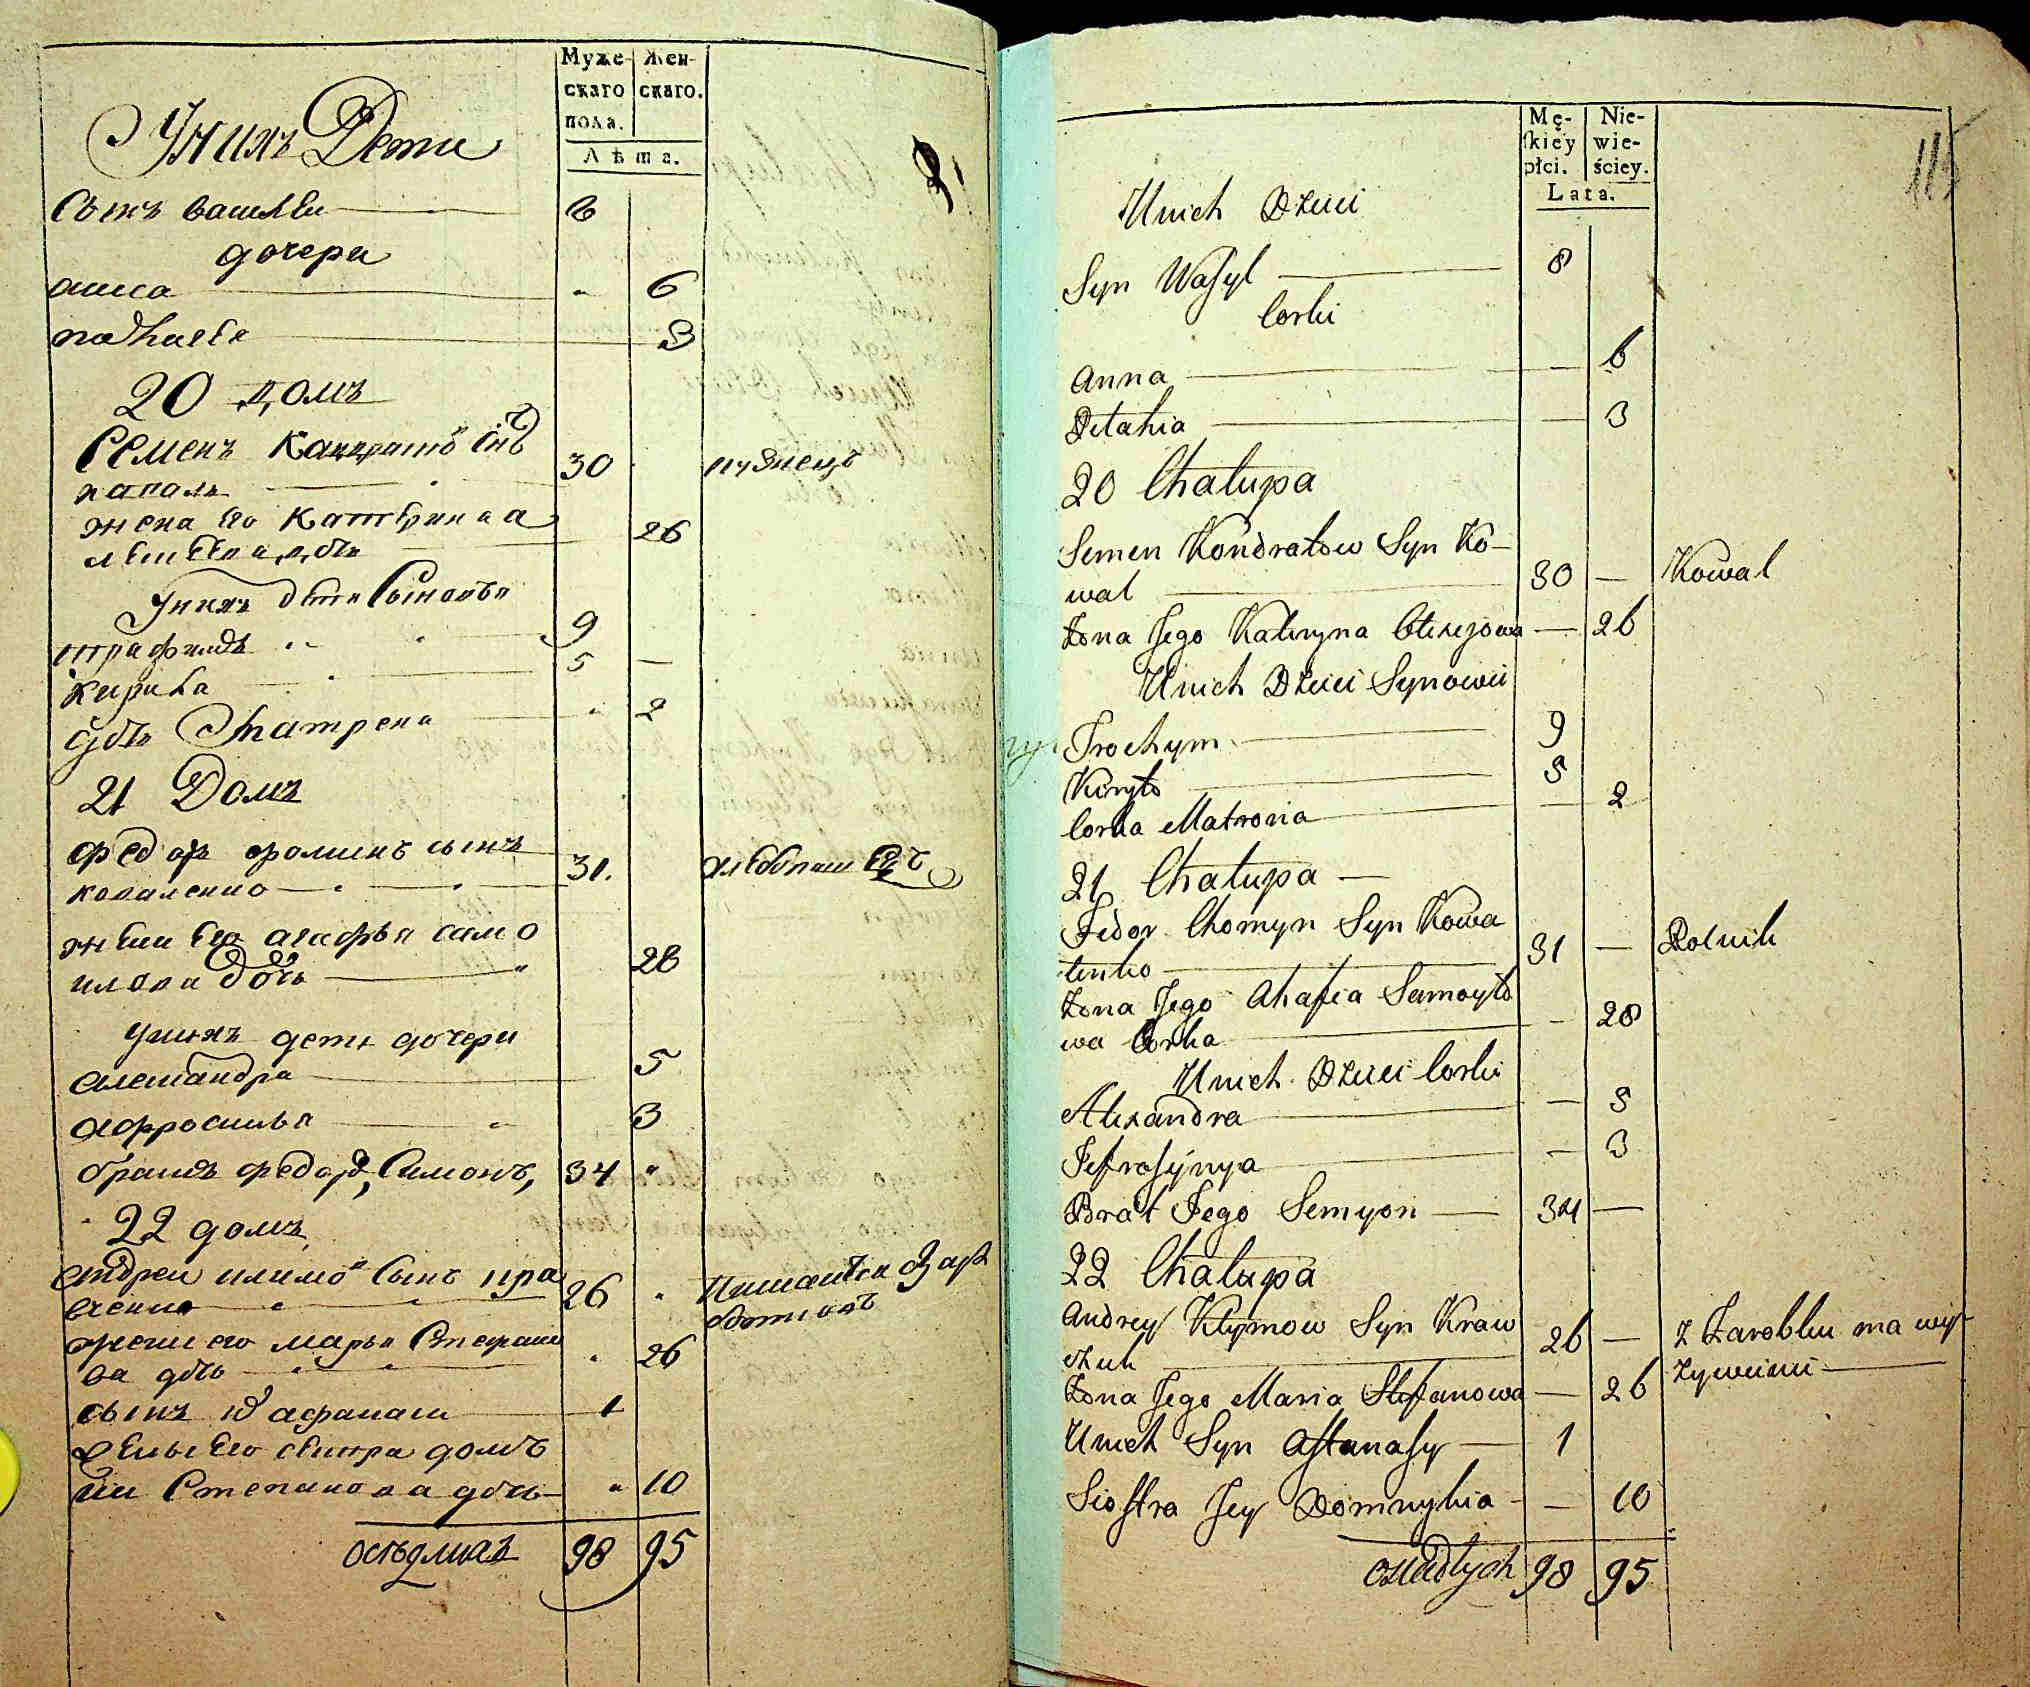 Муже-
скаго
пола.
Жен-
скаго.
Лѣта.
Уних Дети
Сынъ василеи 8
дочери
анна 6
палагея 3
20 домъ
Семенъ Кандратов Снъ
ковалъ 30
жена Его Катерина а
26
Уних дети Сыновья
трафимъ 9
кирила 5
дочь Матрена 2
21 Домъ
федоръ фоминъ сынъ
коваленко 31. хлебопашецъ
жена Его агафья само
илова дочь 28
Уних дети дочери
александра 5
афросинья 3
братъ федора, Симонъ, 34
22 домъ
андреи климов Сынъ кра
вченко 26
жена его марья Стефано
ва дочь 26
сынъ афанаси 1
сестра домъ
на Степанова дочь 10
оседлихъ 98 95
Mę-
skiey
płci.
Nie-
wie-
ściey.
Lata.
115
Unich Dzieci
Syn Wasyl 8
Corki
Anna 6
Pelahia 3
20 Chalupa
Semen Kondratow Syn Ko-
wal 30 Kowal
Zona Jego Kateryna Olexejowa 26
Unich Dzieci Synowie
Trochym 9
Kiryło 5
Corka Matrona 2
21 Chalupa
Fedor Chomyn Syn Kowa
lenko 31 Rolnik
Zona Jego Ahafia Samoyło
wa Corka 28
Unich Dzieci Corki
Alexandra 5
Jefrosynya 3
Brat Jego Semyon 34
22 Chalupa
Andrey Klymow Syn Kraw
czuk 26 Z Zarobku ma wy-
zywienie
Zona Jego Maria Stefanowa 26
Unich Syn Afanasy 1
Siostra Jey Domnykia 10
osiadłych 98 95